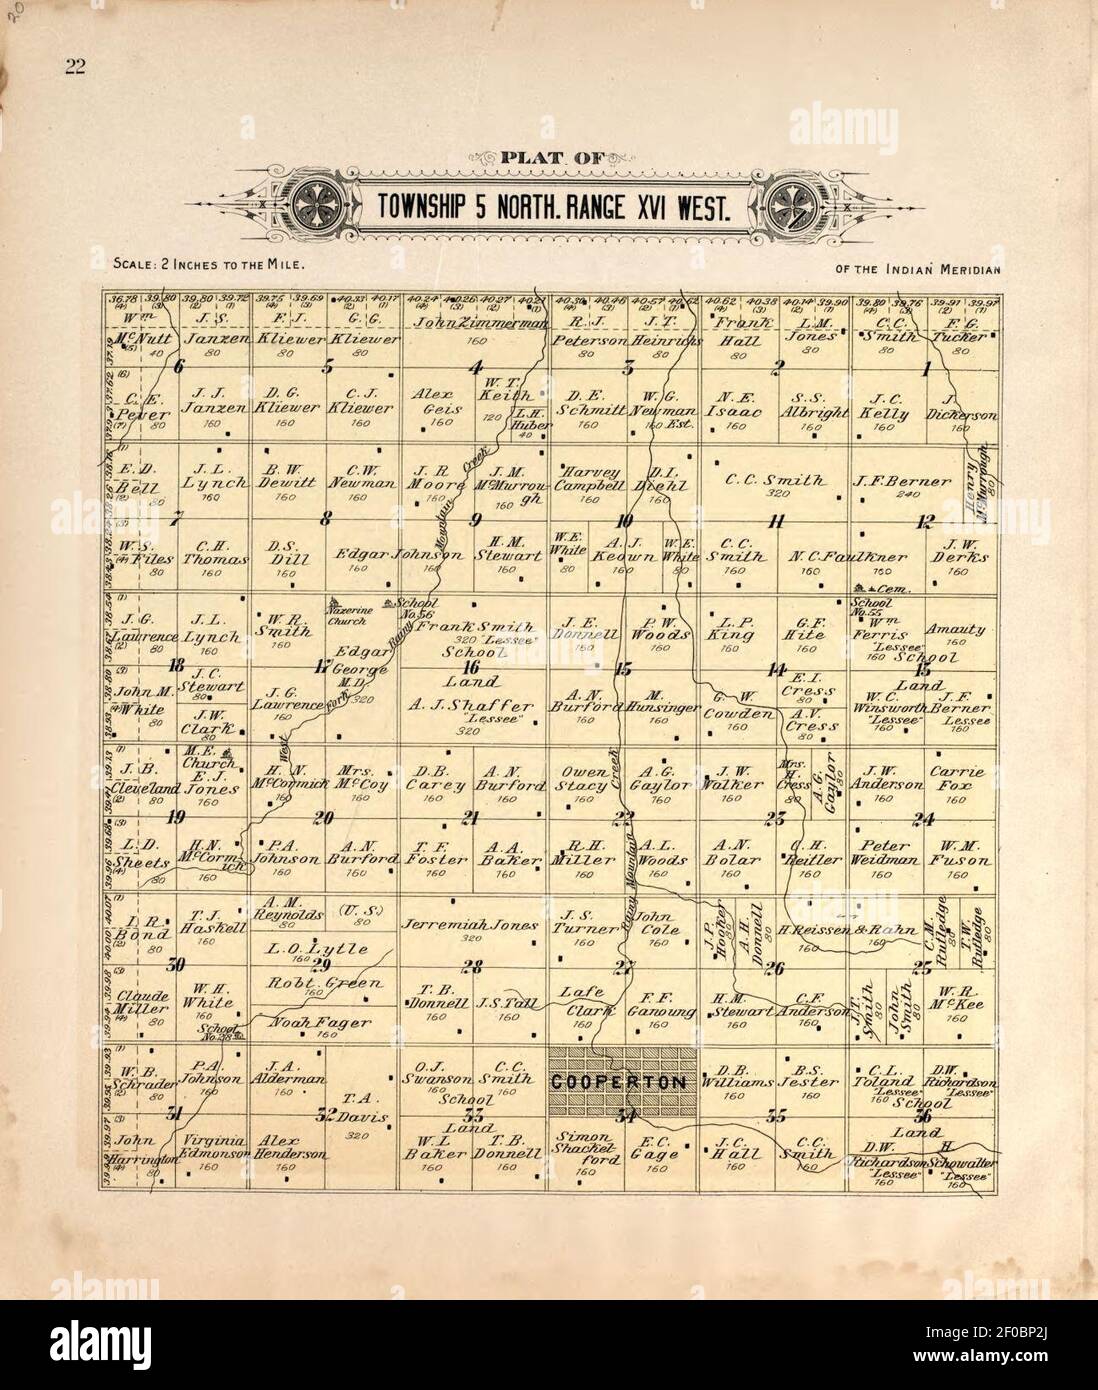 20
22
PLAT OF
TOWNSHIP 5 NORTH. RANGE XVI WEST.
SCALE: 2 INCHES TO THE MILE.
OF THE INDIAN MERIDIAN
36.78 39.80 39.80 39.72 39.75 39.69 40.33 40.17 40.24 40.26 40.27 40.21 40.30 40.46 40.57 40.62 40.62 40.38 40.14 39.90 39.80 39.76 39.91 39.97
Wm McNutt 40
J. S. Janzen 80
F. J. Kliewer 80
G. G. Kliewer 80
John Zimmerman 160
R. J. Peterson 80
J. T. Heinrichs 80
Frank Hall 80
L. M. Jones 80
C. C. Smith 80
F. G. Tucker 80
6 5 4 3 2 1
C. E. Pever
J. J. Janzen 160
D. G. Kliewer 160
C. J. Kliewer 160
Alex Geis 160
W. T. Keith 120
L. H. Huber 40
D. E. Schmitt 160
W. G. Newman Est. 160
N. E. Isaac 160
S. S. Albright 160
J. C. Kelly 160
J. Dickerson 160
E. D. Bell 80
J. L. Lynch 160
B. W. Dewitt 160
C. W. Newman 160
J. R. Moore 160
Creek
J. M. McMurrough 160
Harvey Campbell 160
D. I. Diehl 160
C. C. Smith 320
J. F. Berner 240
Henry McMurrough 80
7 8 9 10 11 12
W. S. Files 80
C. H. Thomas 160
D. S. Dill 160
Edgar Johnson 160
Mountain
H. M. Stewart 160
W. E. White 80
A. J. Keown 160
W. E. White 80
C. C. Smith 160
N. C. Faulkner 160
J. W. Derks 160
Cem.
J. G. Lawrence 80
J. L. Lynch 160
W. R. Smith 160
Nazerine Church
School No. 56
Rainy
Edgar George M. D. 320
Frank Smith 320 "Lessee"
School Land
J. E. Donnell 160
P. W. Woods 160
L. P. King 160
G. F. Hite 160
School No. 55
Wm Ferris "Lessee" 160
Amauty 160
School Land
18 17 16 15 14 13
John M. White 80
J. C. Stewart 80
J. W. Clark 80
J. G. Lawrence 160
Fork
A. J. Shaffer "Lessee" 320
A. N. Burford 160
M. Hunsinger 160
G. W. Cowden 160
E. I. Cress 80
A. V. Cress 80
W. C. Winsworth "Lessee" 160
J. F. Berner Lessee 160
J. B. Cleveland 80
M. E. Church
E. J. Jones 160
West
H. N. McCormick 160
Mrs. McCoy 160
D. B. Carey 160
A. N. Burford 160
Owen Stacy 160
Creek
A. G. Gaylor 160
J. W. Walker 160
Mrs. H. Cress 80
A. G. Gaylor 80
J. W. Anderson 160
Carrie Fox 160
19 20 21 22 23 24
L. D. Sheets 80
H. N. McCormick 160
P. A. Johnson 160
A. N. Burford 160
T. F. Foster 160
A. A. Baker 160
R. H. Miller 160
Rainy Mountain
A. L. Woods 160
A. N. Bolar 160
C. H. Reitler 160
Peter Weidman 160
W. M. Fuson 160
I. R. Bond 80
T. J. Haskell 160
A. M. Reynolds 80
(U. S.) 80
L. O. Lytle 160
Jerremiah Jones 320
J. S. Turner 160
John Cole 160
J. P. Hooker 80
A. H. Donnell 80
H. Reissen & Rahn 160 160
C. M. Rutledge 80
T. W. Rutledge 80
30 29 28 27 26 25
Claude Miller 80
W. H. White 160
School No. 38
Robt. Green 160
Noah Fager 160
T. B. Donnell 160
J. S. Tall 160
Lafe Clark 160
F. F. Ganoung 160
H. M. Stewart 160
C. F. Anderson 160
J. T. Smith 80
John Smith 80
W. R. McKee 160
W. B. Schrader 80
P. A. Johnson 160
J. A. Alderman 160
T. A. Davis 320
O. J. Swanson 160
C. C. Smith 160
School Land
COOPERTON
D. B. Williams 160
B. S. Jester 160
C. L. Toland "Lessee" 160
D. W. Richardson "Lessee" 160
School Land
31 32 33 34 35 36
John Harrington 80
Virginia Edmonson 160
Alex Henderson 160
W. I. Baker 160
T. B. Donnell 160
Simon Shackelford 160
E. C. Gage 160
J. C. Hall 160
C. C. Smith 160
D. W. Richardson "Lessee" 160
H. Schowalter "Lessee" 160
alamy
Image ID: 2F0BP2J
www.alamy.com